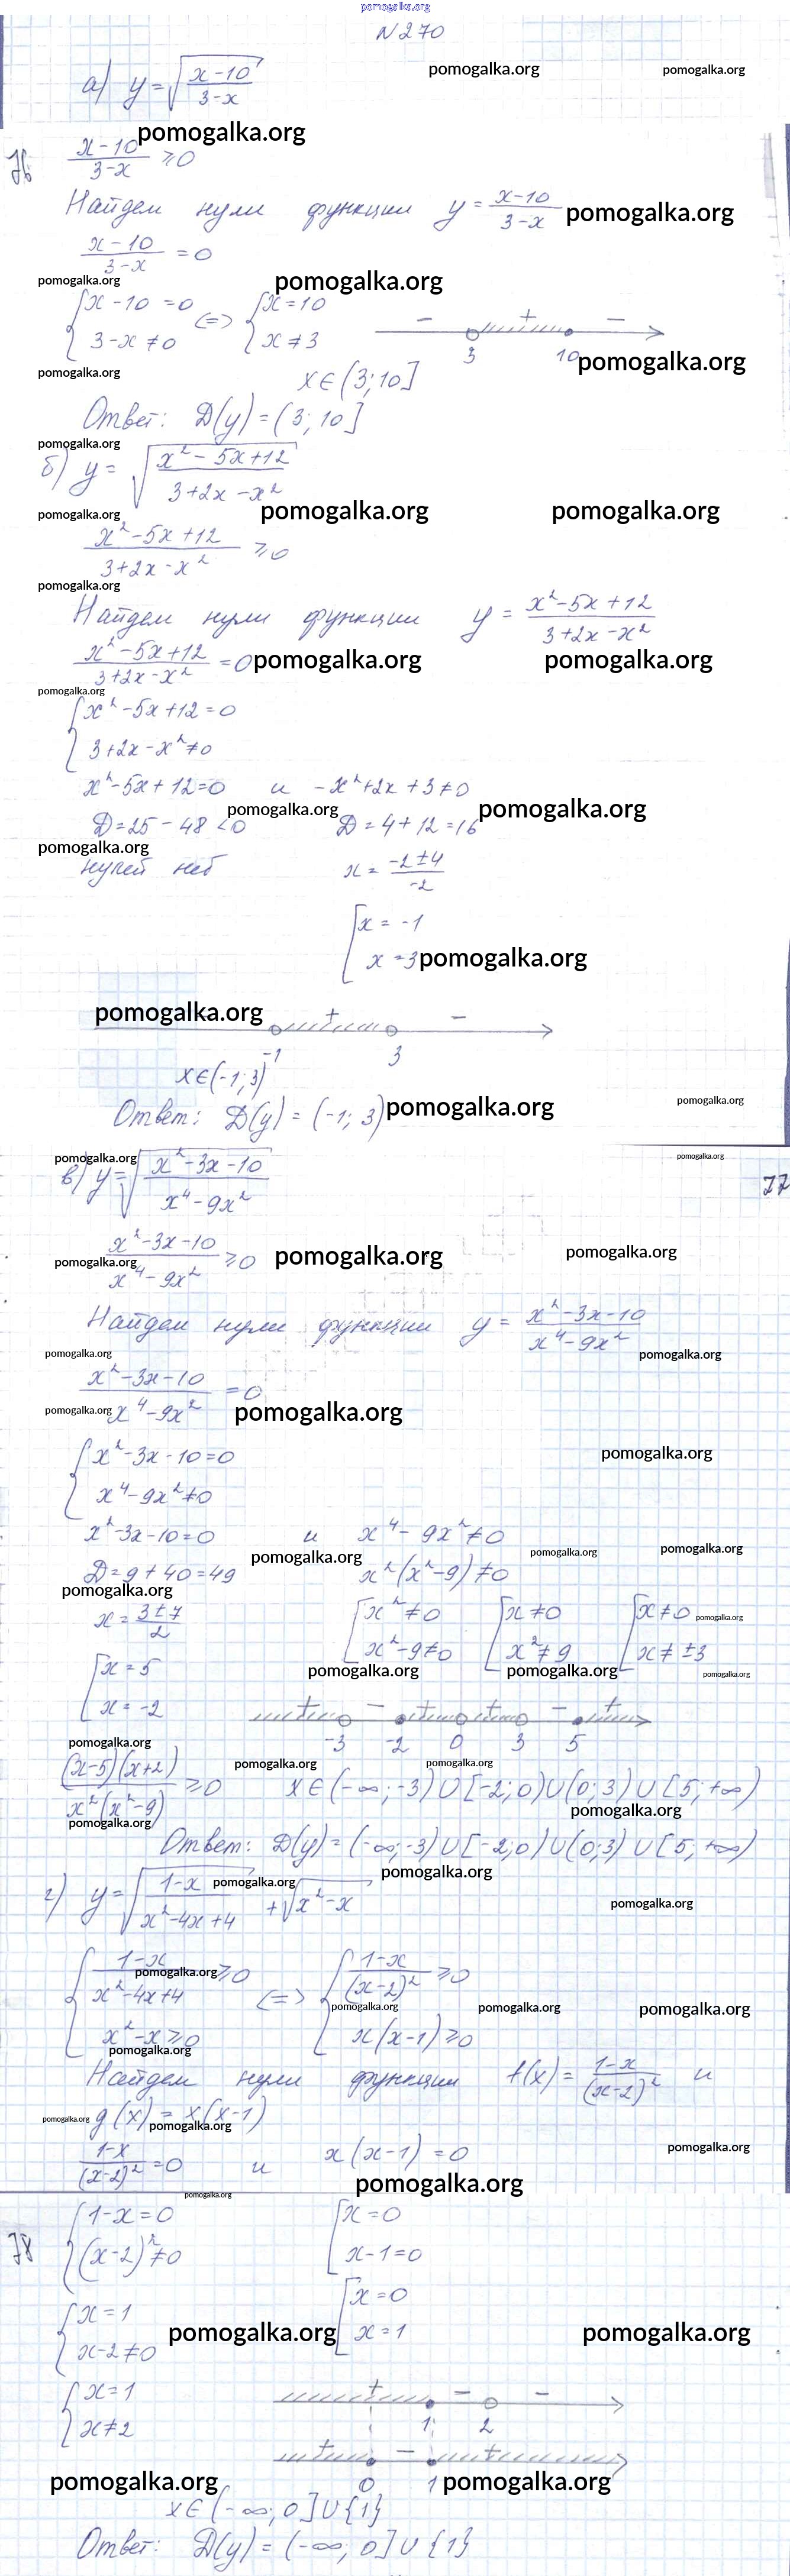 pomogalka.org
N270
а) y = √((x-10)/(3-x))
pomogalka.org pomogalka.org
pomogalka.org
76 (x-10)/(3-x) ≥ 0
Найдем нули функции y = (x-10)/(3-x) pomogalka.org
(x-10)/(3-x) = 0
pomogalka.org pomogalka.org
{x-10=0 <=> {x=10
{3-x≠0 {x≠3
− + −
3 10 pomogalka.org
pomogalka.org x∈(3;10]
Ответ: D(y)=(3;10]
pomogalka.org
б) y = √((x²-5x+12)/(3+2x-x²))
pomogalka.org pomogalka.org pomogalka.org
(x²-5x+12)/(3+2x-x²) ≥ 0
pomogalka.org
Найдем нули функции y = (x²-5x+12)/(3+2x-x²)
(x²-5x+12)/(3+2x-x²) = 0 pomogalka.org pomogalka.org
pomogalka.org
{x²-5x+12=0
{3+2x-x²≠0
x²-5x+12=0 и -x²+2x+3≠0
pomogalka.org pomogalka.org
D=25-48<0 D=4+12=16
pomogalka.org
нулей нет x = (-2±4)/(-2)
[x = -1
[x = 3 pomogalka.org
pomogalka.org + −
-1 3
x∈(-1;3)
Ответ: D(y)=(-1;3) pomogalka.org pomogalka.org
pomogalka.org pomogalka.org
в) y = √((x²-3x-10)/(x⁴-9x²))
77
(x²-3x-10)/(x⁴-9x²) ≥ 0
pomogalka.org pomogalka.org pomogalka.org
Найдем нули функции y = (x²-3x-10)/(x⁴-9x²)
pomogalka.org pomogalka.org
(x²-3x-10)/(x⁴-9x²) = 0
pomogalka.org pomogalka.org
{x²-3x-10=0 pomogalka.org
{x⁴-9x²≠0
x²-3x-10=0 и x⁴-9x²≠0
pomogalka.org pomogalka.org pomogalka.org
D=9+40=49 x²(x²-9)≠0
pomogalka.org
x = (3±7)/2 [x²≠0 [x≠0 [x≠0 pomogalka.org
[x²-9≠0 [x²≠9 [x≠±3
pomogalka.org pomogalka.org pomogalka.org
[x = 5
[x = -2
+ − + + − +
-3 -2 0 3 5
pomogalka.org
pomogalka.org pomogalka.org
((x-5)(x+2))/(x²(x²-9)) ≥ 0 x∈(-∞;-3)∪[-2;0)∪(0;3)∪[5;+∞)
pomogalka.org pomogalka.org
Ответ: D(y)=(-∞;-3)∪[-2;0)∪(0;3)∪[5;+∞)
pomogalka.org
г) y = √((1-x)/(x²-4x+4)) + √(x²-x)
pomogalka.org pomogalka.org
{(1-x)/(x²-4x+4) ≥ 0 <=> {(1-x)/(x-2)² ≥ 0
pomogalka.org
pomogalka.org pomogalka.org pomogalka.org
{x²-x≥0 {x(x-1)≥0
pomogalka.org
Найдем нули функции f(x) = (1-x)/(x-2)² и
pomogalka.org g(x) = x(x-1)
pomogalka.org
(1-x)/(x-2)² = 0 и x(x-1)=0 pomogalka.org
pomogalka.org
pomogalka.org
78 {1-x=0 [x=0
{(x-2)²≠0 [x-1=0
{x=1 [x=0
{x-2≠0 [x=1
pomogalka.org pomogalka.org
{x=1
{x≠2
+ − −
1 2
+ − +
0 1
pomogalka.org pomogalka.org
x∈(-∞;0]∪{1}
Ответ: D(y)=(-∞;0]∪{1}